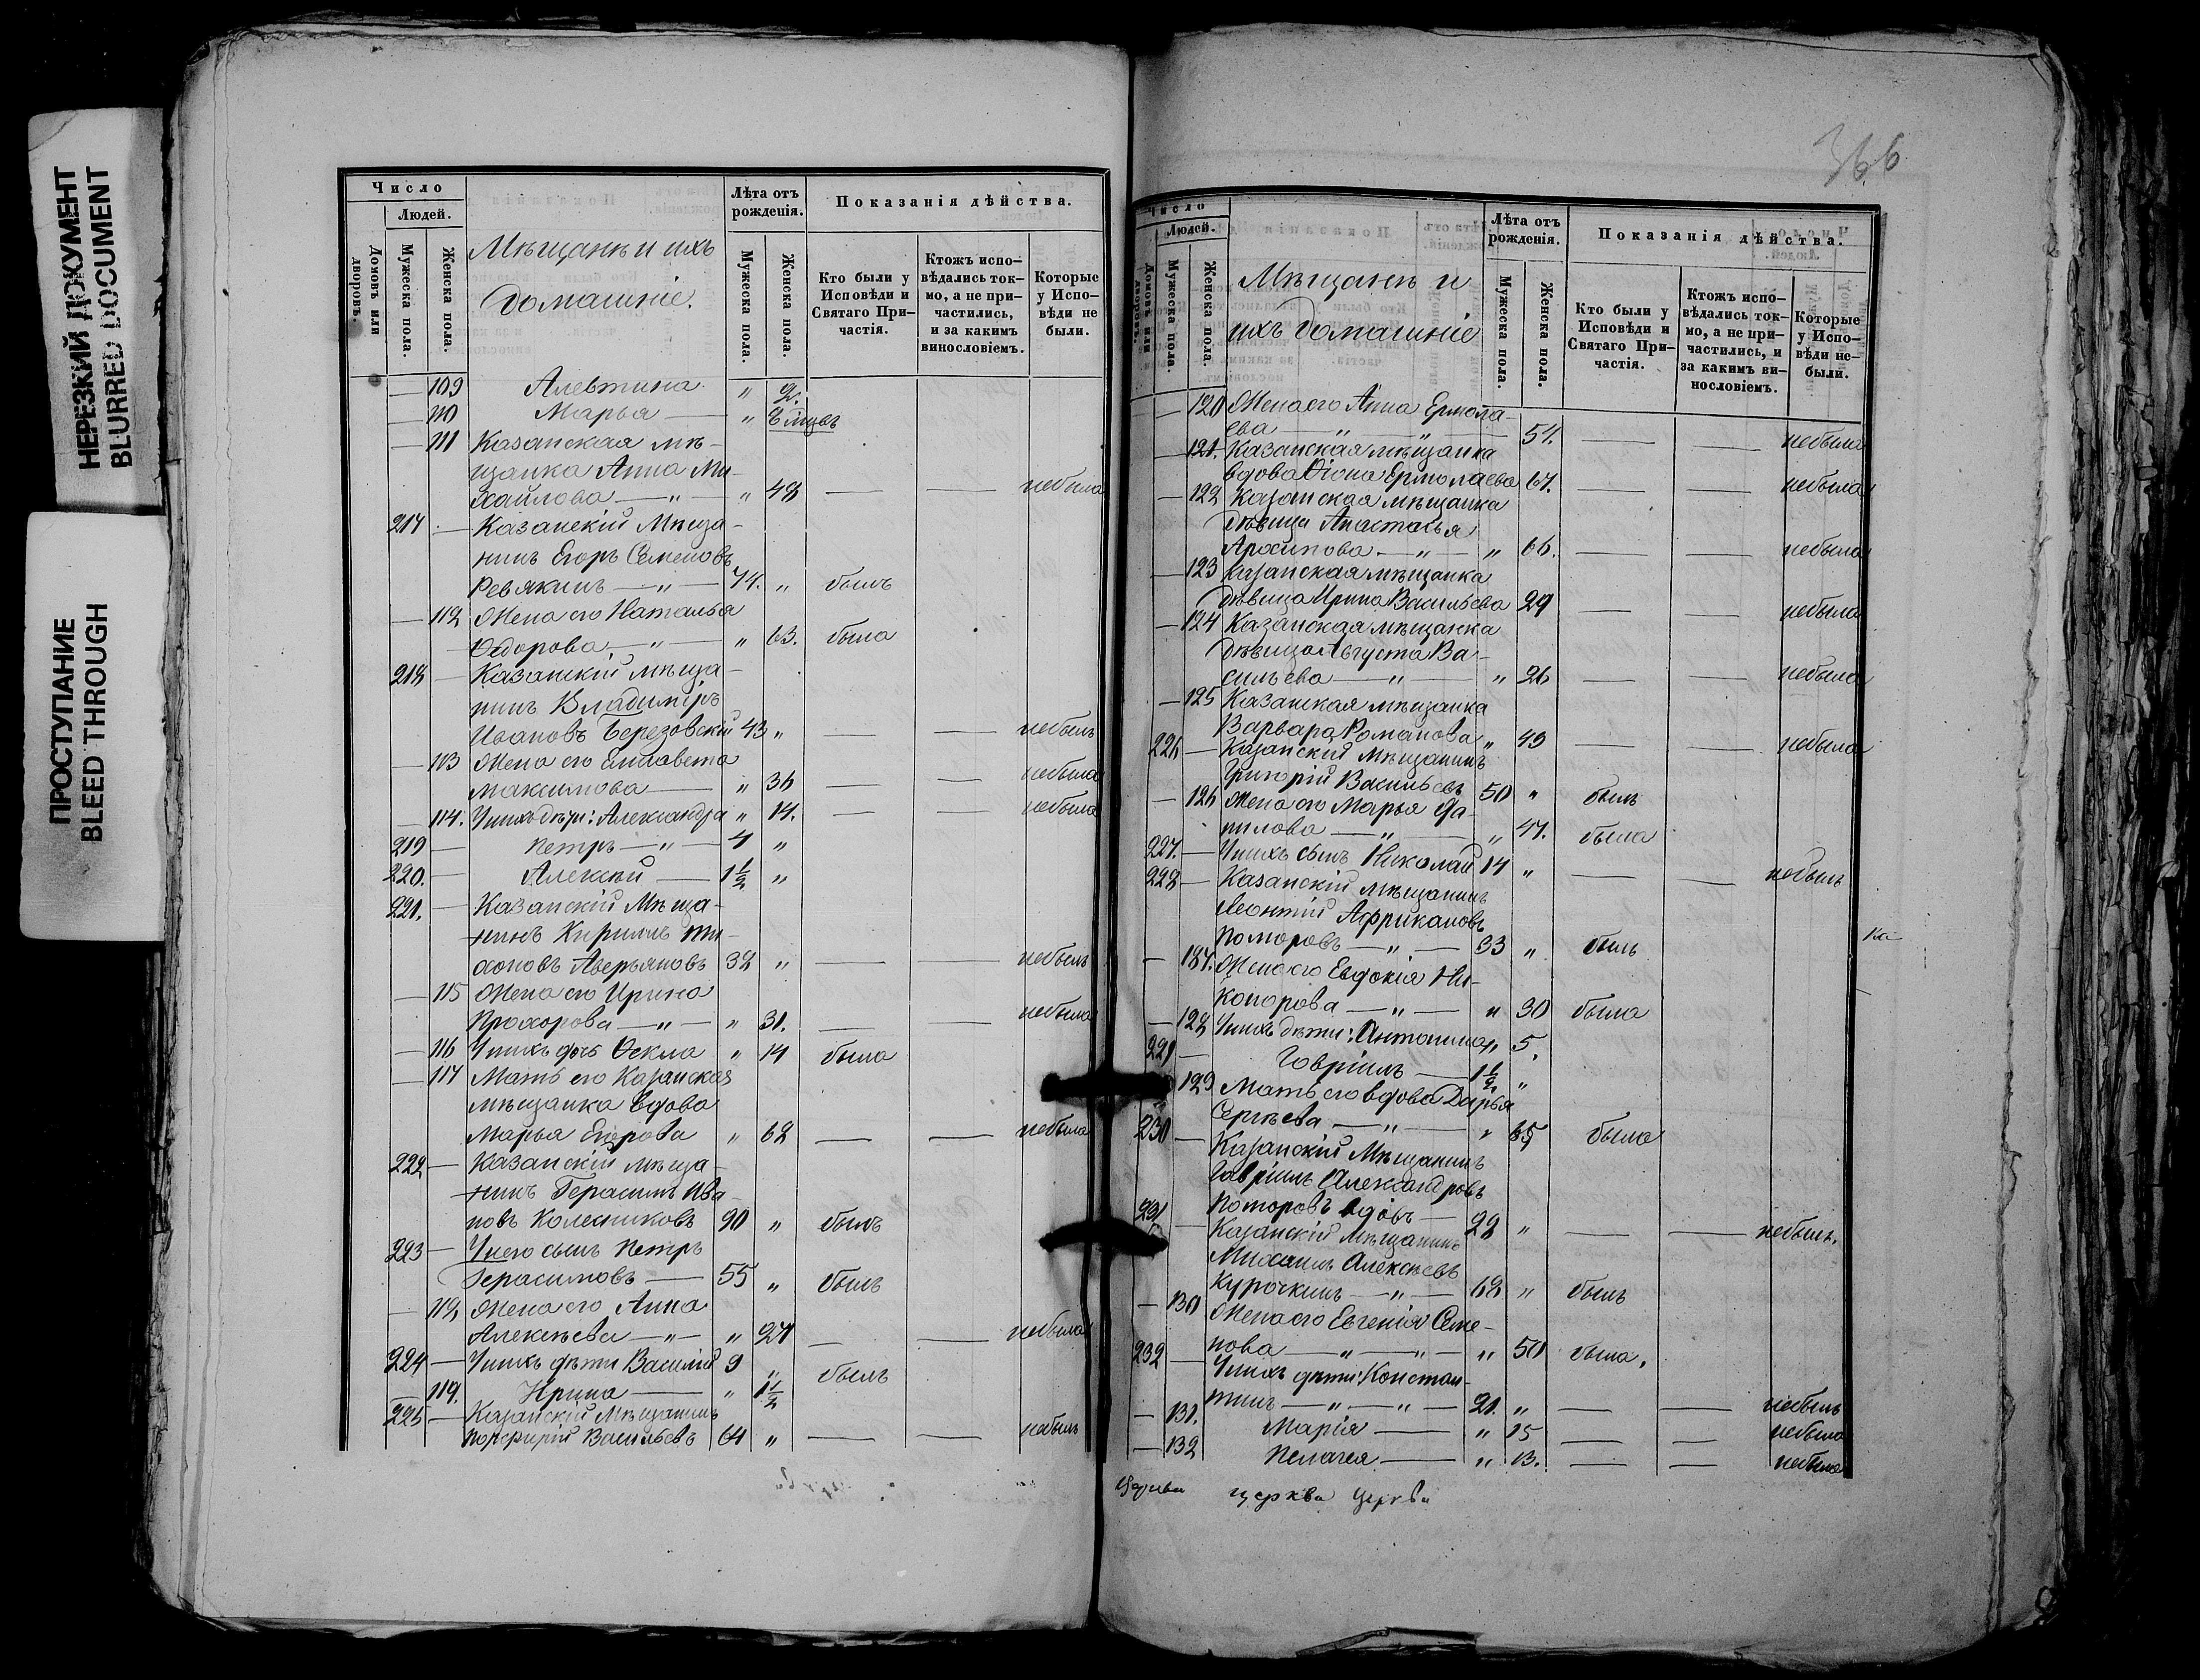 НЕРЕЗКИЙ ДОКУМЕНТ
BLURRED DOCUMENT
ПРОСТУПАНИЕ
BLEED THROUGH
Число
Людей.
Домовъ или дворовъ.
Мужеска пола.
Женска пола.
Мѣщане и ихъ
домашніе.
Лѣта отъ рожденія.
Мужеска пола.
Женска пола.
Показанія дѣйства.
Кто были у Исповѣди и Святаго Причастія.
Ктожъ исповѣдались токмо, а не причастились, и за какимъ винословіемъ.
Которые у Исповѣди не были.
— 109 Алевтина „ 2.
— 110 Марья — „ 8 мцевъ
— 111 Казанская мѣ-
щанка Анна Ми-
хайлова — „ — „ 48 — — небыла
217 — Казанскій Мѣща-
нинъ Егоръ Семеновъ
Ревякинъ — „ — 74. „ былъ
— 112 Жена его Наталья
Ѳедорова — „ — „ 63. была
218 — Казанскій мѣща-
нинъ Владиміръ
Ивановъ Березовскій 43 „ — — небылъ
— 113 Жена его Елисавета
Максимова — „ 36 — — небыла
— 114. У нихъ дѣти: Александра „ 14. — небыла
219 — Петръ — „ — 4 „
220. — Алексѣй — 1½ „
221. — Казанскій Мѣща-
нинъ Кириллъ Ти-
хоновъ Аверьяновъ 32 „ — — небылъ
— 115 Жена его Ирина
Прохорова — „ — „ 31. — — небыла
— 116 У нихъ дочь Ѳекла „ 14 была
— 117 Мать его Казанская
мѣщанка вдова
Марья Егорова „ 62 — — небыла
222 — Казанскій мѣща-
нинъ Герасимъ Ива-
новъ Колесниковъ 90 „ былъ
223 — У него сынъ Петръ
Герасимовъ — 55 „ былъ
— 118 Жена его Анна
Алексѣева — „ — „ 27 — — небыла
224 — У нихъ дѣти Василій 9 „ былъ
— 119. Ирина — „ 1½
225 — Казанскій Мѣщанинъ
Порфирій Васильевъ 64 „ — — небылъ
366
Число
Людей.
Домовъ или дворовъ.
Мужеска пола.
Женска пола.
Мѣщане и
ихъ домашніе
Лѣта отъ рожденія.
Мужеска пола.
Женска пола.
Показанія дѣйства.
Кто были у Исповѣди и Святаго Причастія.
Ктожъ исповѣдались токмо, а не причастились, и за какимъ винословіемъ.
Которые у Исповѣди небыли.
— 120 Жена его Анна Ермола-
ева — „ — „ 57. — — небыла
— 121. Казанская мѣщанка
вдова Ѳіона Ермолаева 67. — — небыла
— 122 Казанская мѣщанка
дѣвица Анастасья
Архипова — „ — „ 66. — — небыла
— 123 Казанская мѣщанка
дѣвица Ирина Васильева 29 — — небыла
— 124 Казанская мѣщанка
дѣвица Августа Ва-
сильева — „ — „ 26 — — небыла
— 125 Казанская мѣщанка
Варвара Романова „ 49 — — небыла
226 — Казанскій Мѣщанинъ
Григорій Васильевъ 50 „ былъ
— 126 Жена его Марья Да-
нилова — „ — „ 47. была
227. — У нихъ сынъ Николай 14 „ — — небылъ
228 — Казанскій Мѣщанинъ
Леонтій Африкановъ
Поморовъ — „ — 33 „ былъ
— 127. Жена его Евдокія Ни-
конорова — „ — „ 30 была
— 128 У нихъ дѣти: Антонина „ 5.
229 — Гавріилъ — 1½ „
129 Мать его вдова Дарья
Сергѣева — „ — „ 65 была
230 — Казанскій Мѣщанинъ
Гавріилъ Александровъ
Поморовъ вдовъ — 28 „ — — небылъ.
231 — Казанскій Мѣщанинъ
Михаилъ Алексѣевъ
Курочкинъ — „ — 68 „ былъ
— 130 Жена его Евгенія Семе-
нова — „ — „ — „ 50 была.
232 — У нихъ дѣти: Констан-
тинъ — „ — „ — 21. „ — — небылъ
— 131. Марія — „ 15 — — небыла
— 132 Пелагея — „ 13. — — небыла
церкви церкви